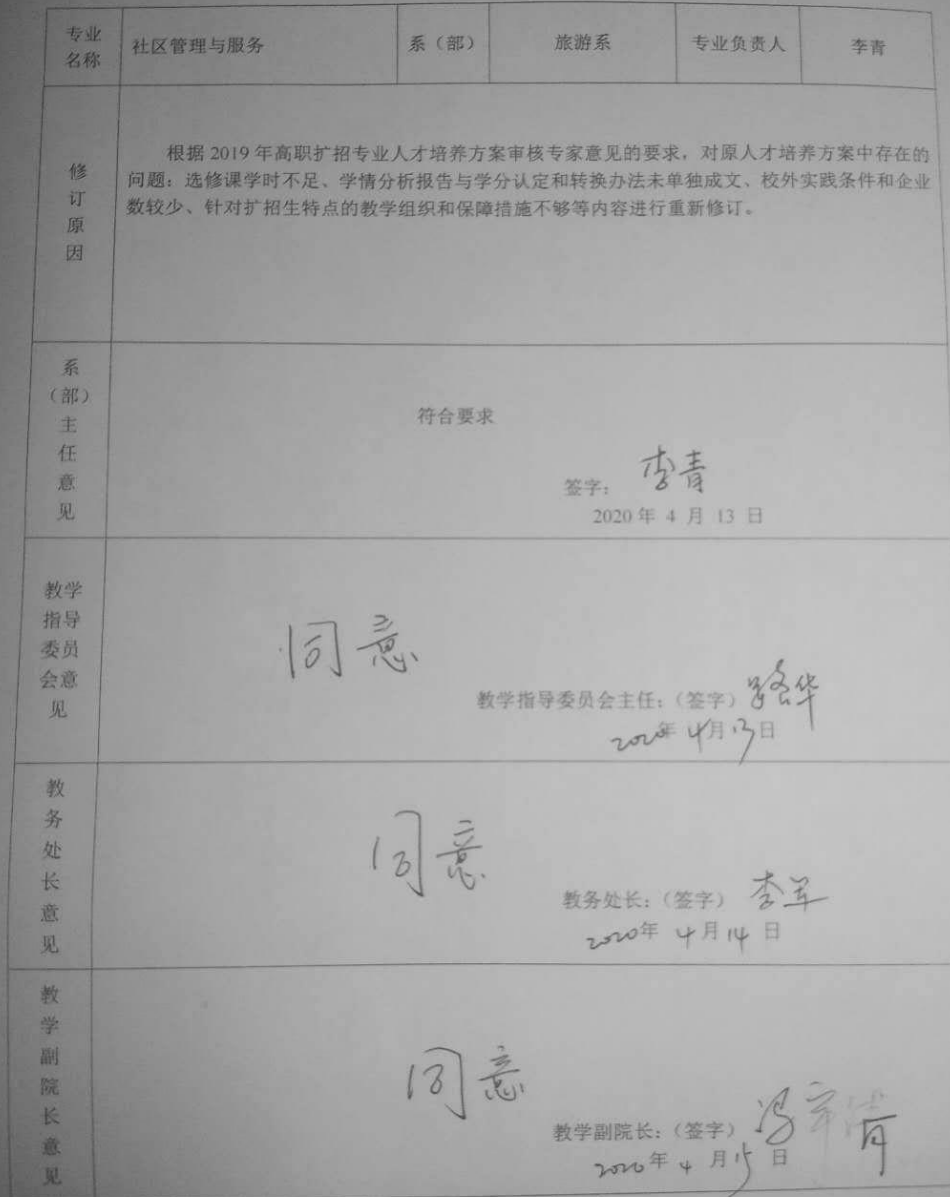 专业名称 社区管理与服务 系（部） 旅游系 专业负责人 李青
修订原因
根据 2019 年高职扩招专业人才培养方案审核专家意见的要求，对原人才培养方案中存在的
问题：选修课学时不足、学情分析报告与学分认定和转换办法未单独成文、校外实践条件和企业
数较少、针对扩招生特点的教学组织和保障措施不够等内容进行重新修订。
系（部）主任意见
符合要求
签字： 李青
2020 年 4 月 13 日
教学指导委员会意见
同意
教学指导委员会主任：（签字） 华
2020年 4月13日
教务处长意见
同意
教务处长：（签字） 李军
2020年 4月14日
教学副院长意见
同意
教学副院长：（签字） 冯
2020年 4月15日